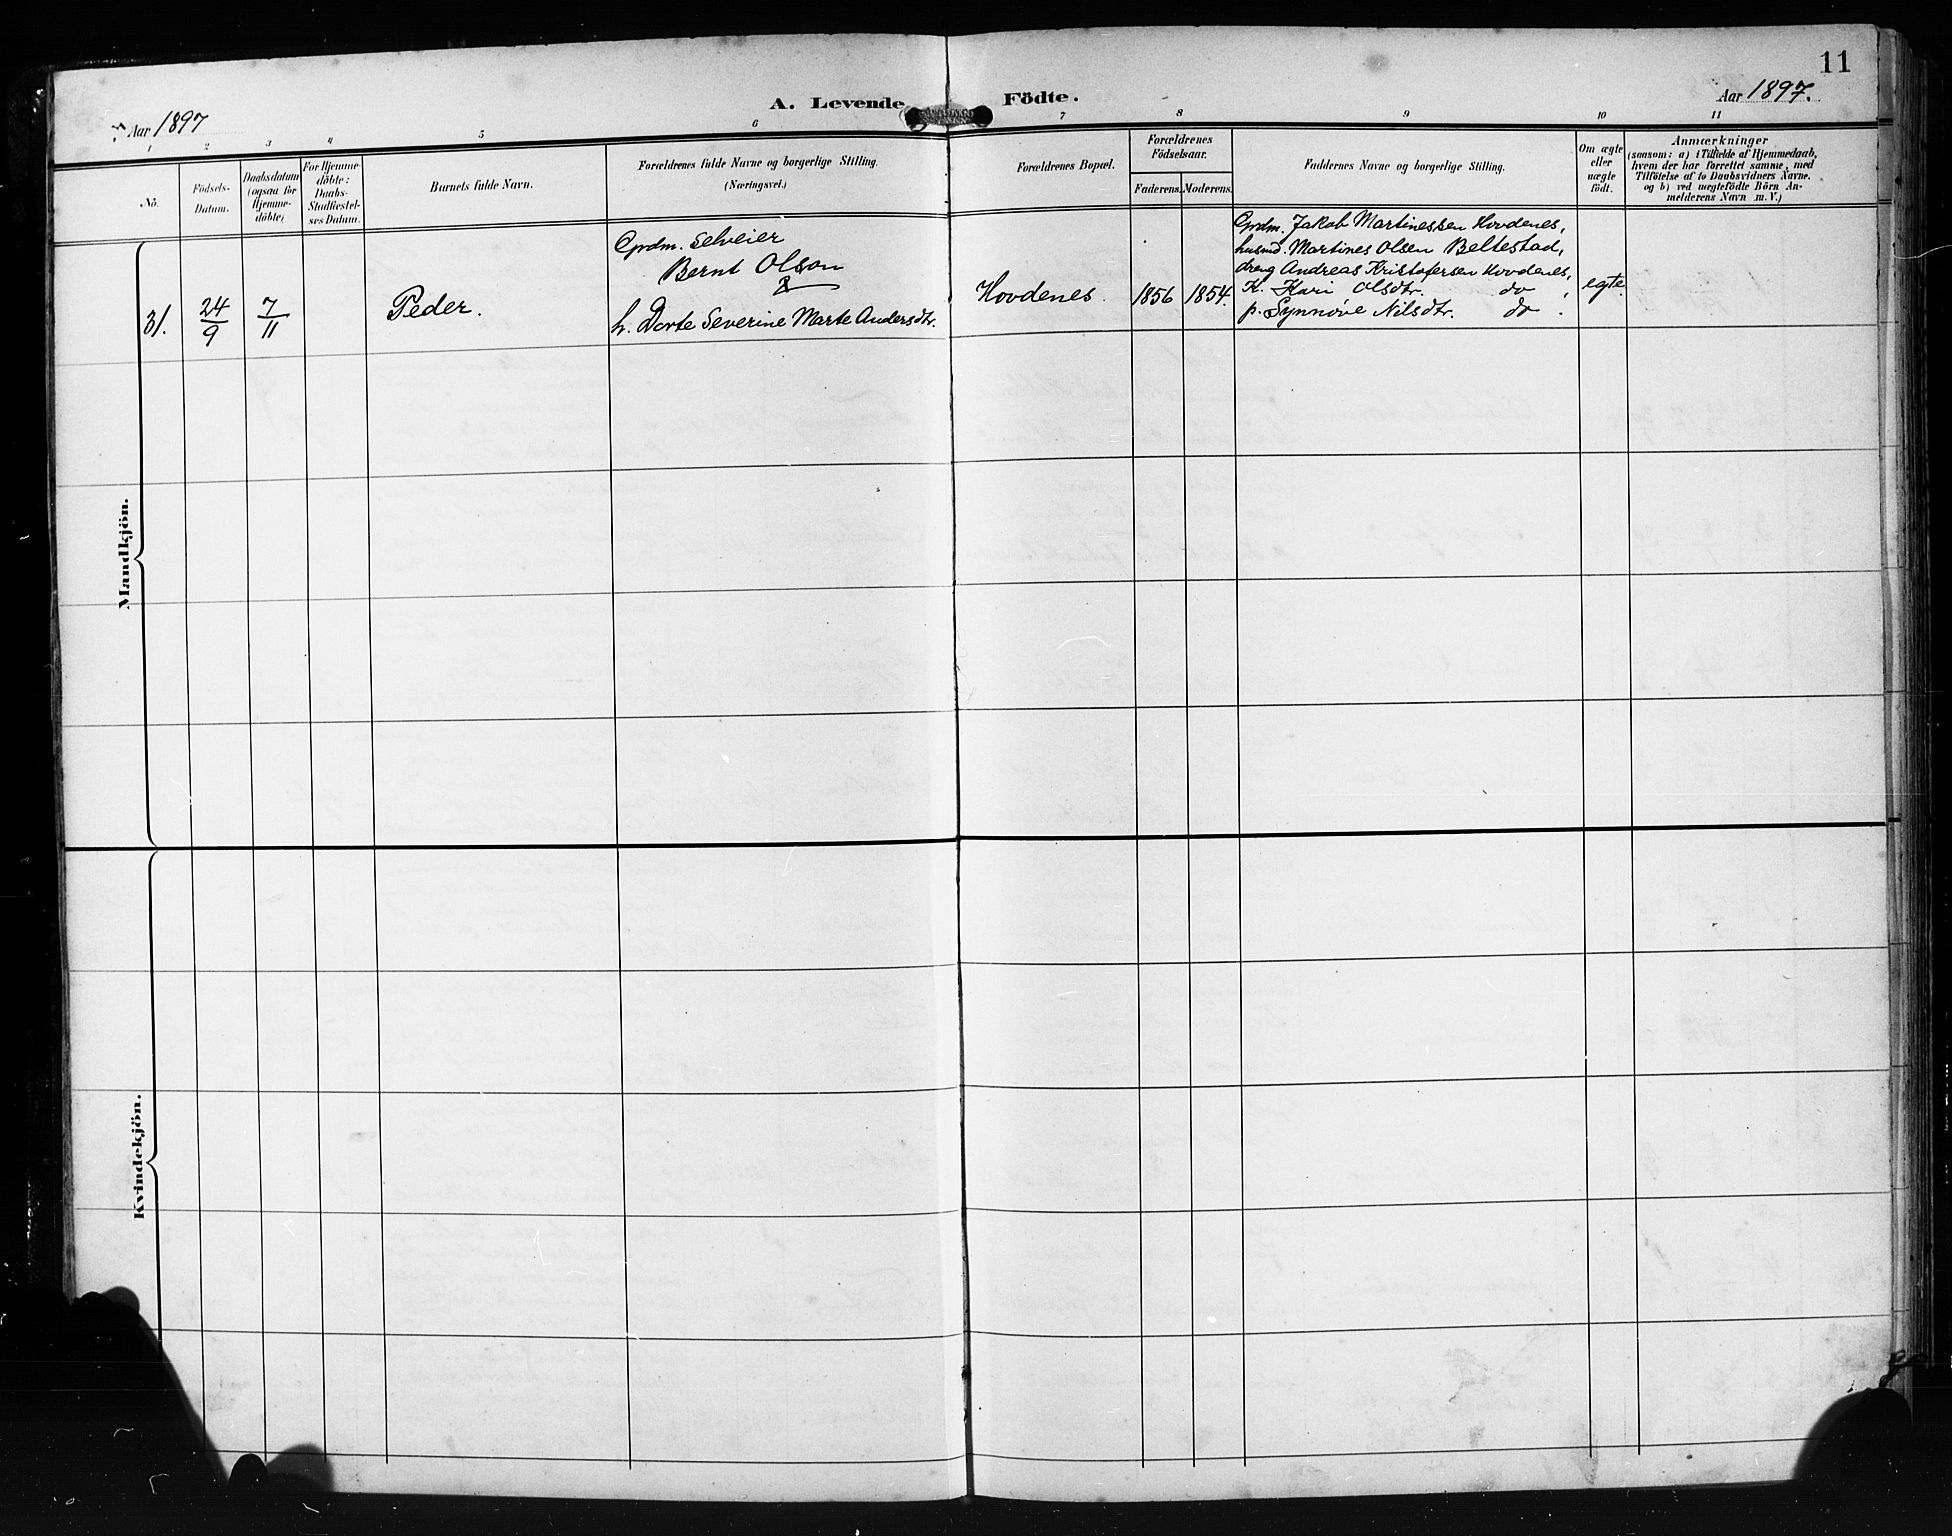 11
A. Levende Födte.
Aar 1897
Aar 1897.
1 2 3 4 5 6 7 8 9 10 11
No.
Födsels-
Datum.
Daabsdatum
(ogsaa for
Hjemme-
döbte)
For Hjemme-
döbte:
Daabs-
Stadfæstel-
ses Datum.
Barnets fulde Navn.
Forældrenes fulde Navne og borgerlige Stilling.
(Næringsvei.)
Forældrenes Bopæl.
Forældrenes
Födselsaar.
Faderens. Moderens.
Faddernes Navne og borgerlige Stilling.
Om ægte
eller
uægte
født.
Anmærkninger
(saasom: a) i Tilfælde af Hjemmedaab,
hvem der har forrettet samme, med
Tilföielse af to Daabsvidners Navne.
og b) ved uægtefödte Börn An-
melderens Navn m. V.)
Mandkjön.
31.
24
9
7
11
Peder.
Gprdm. selveier
Bernt Olson
&
h. Dorte Severine Marte Andersdtr.
Hovdenes.
1856
1854.
Gprdm. Jakob Martinessen Hovdenes,
husmd. Martines Olsen Beltestad,
dreng Andreas Kristofersen Hovdenes,
K. Kari Olsdtr. do ,
p. Synnøve Nilsdtr. do .
egte.
Kvindekjön.